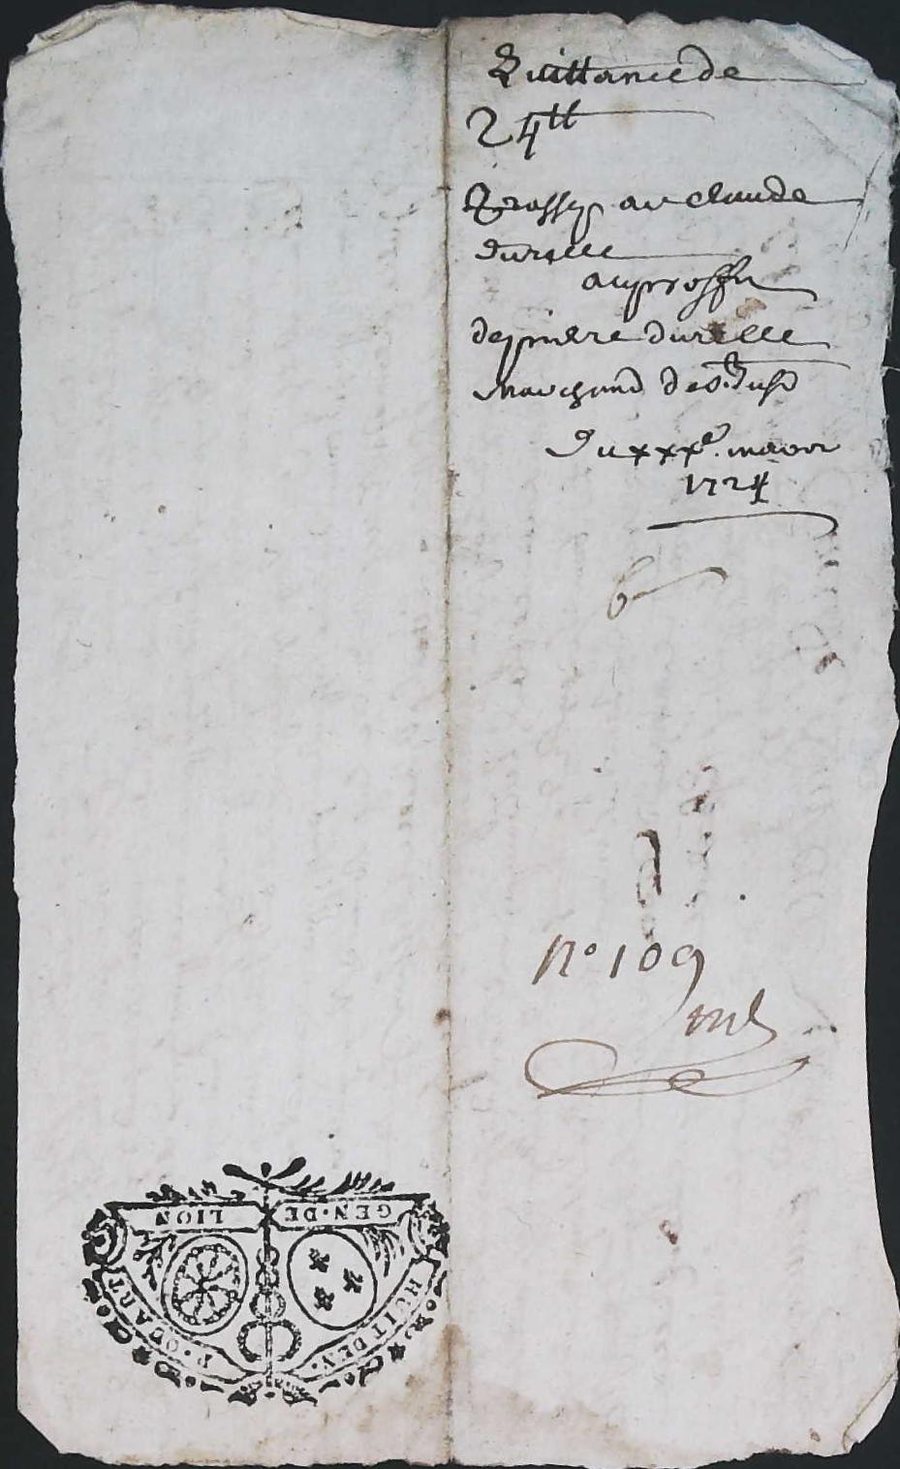 Quittance de
24ᵗᵗ
au claude
durelle
au proffit
de pierre durelle
marchand de
Du xxxᵉ. mars
1724
6
N° 109
GEN·DE LION
HUIT DEN· P·QUART